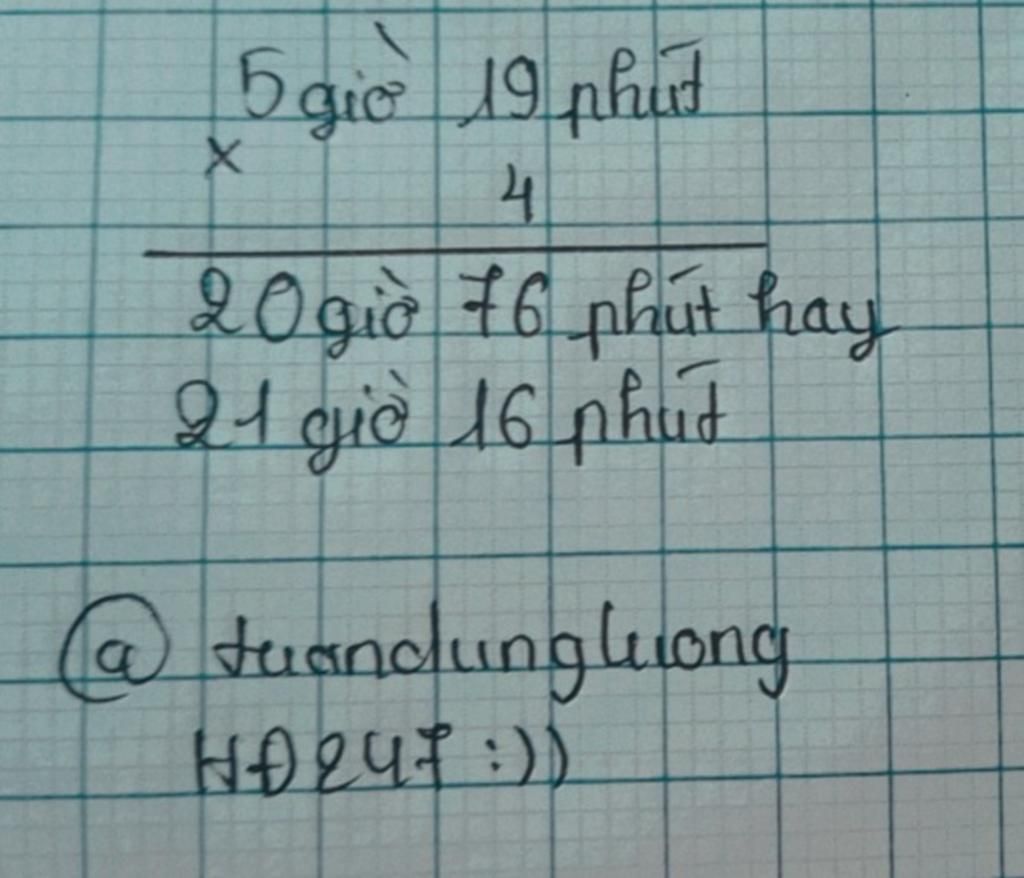 5 giờ 19 phút
×
4
20 giờ 76 phút hay
21 giờ 16 phút
@ tuandungluong
HĐ247 :))